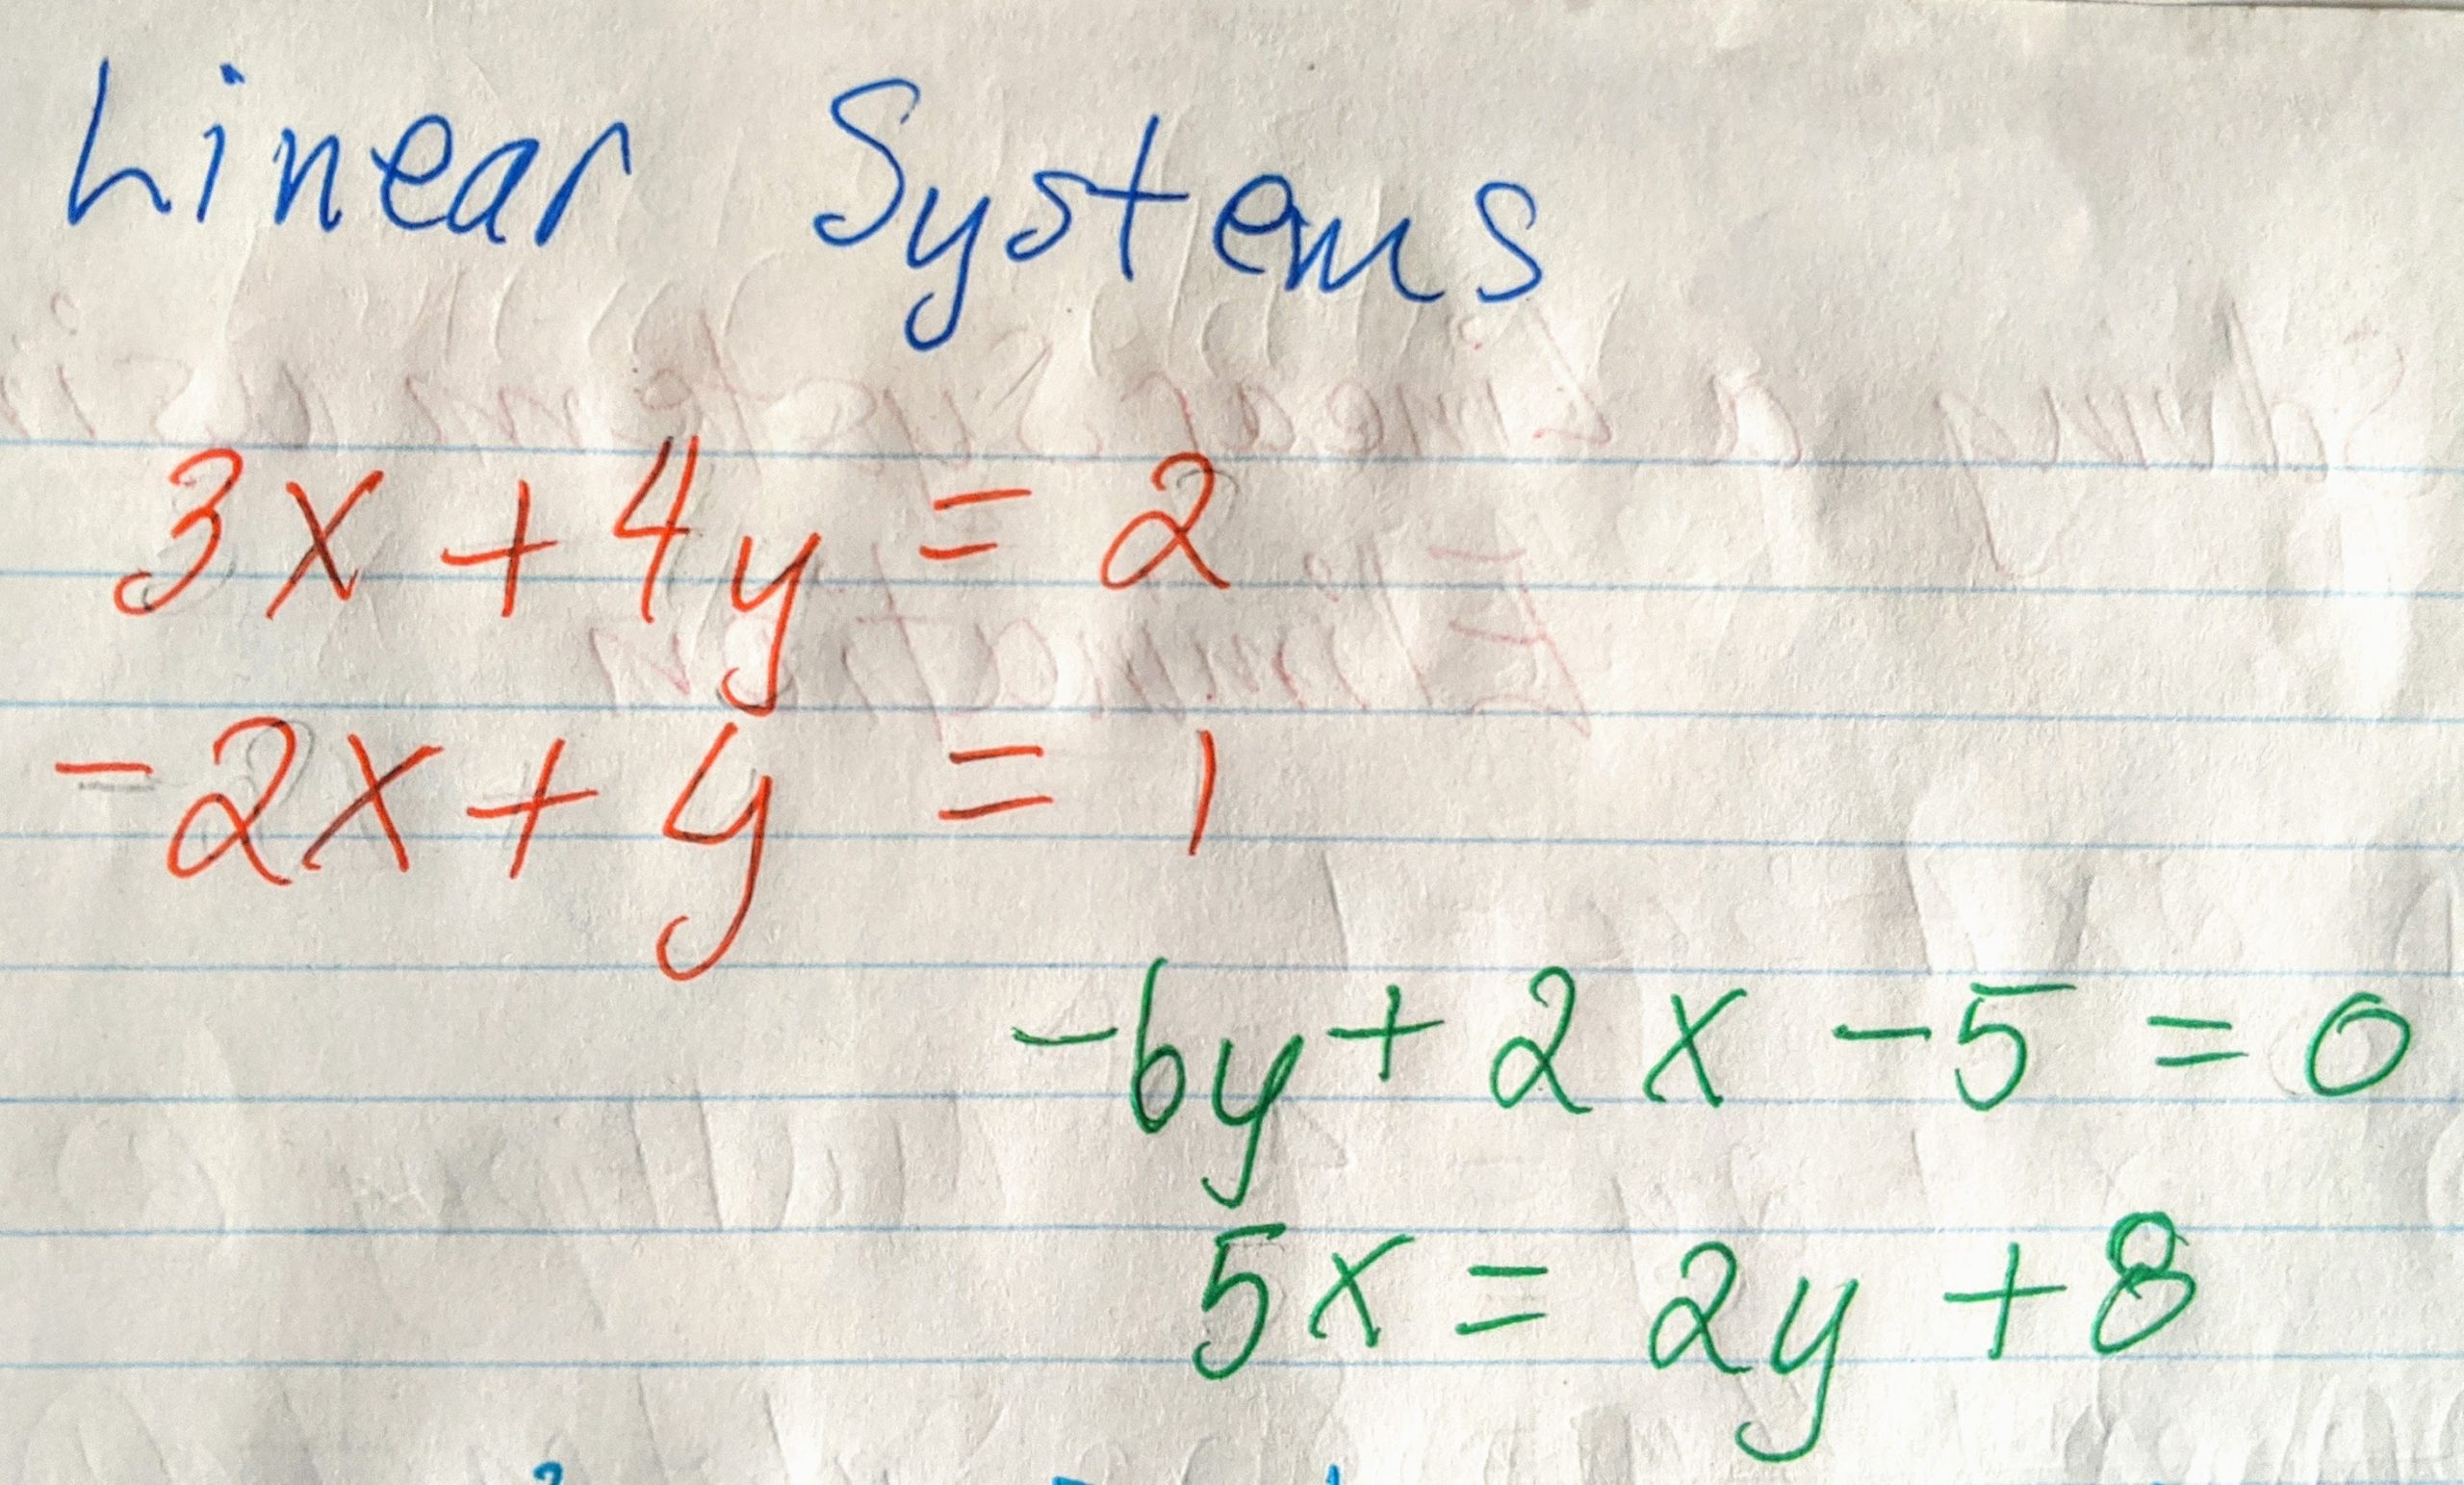 Linear Systems
3x + 4y = 2
-2x + y = 1
-6y + 2x - 5 = 0
5x = 2y + 8